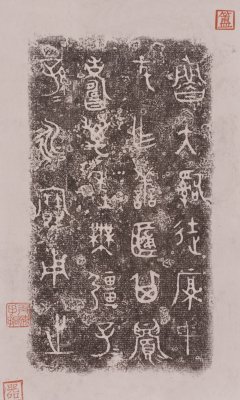 魯大嗣徒厚氏
元乍善其眉
壽萬年無疆子
孫永寶用之